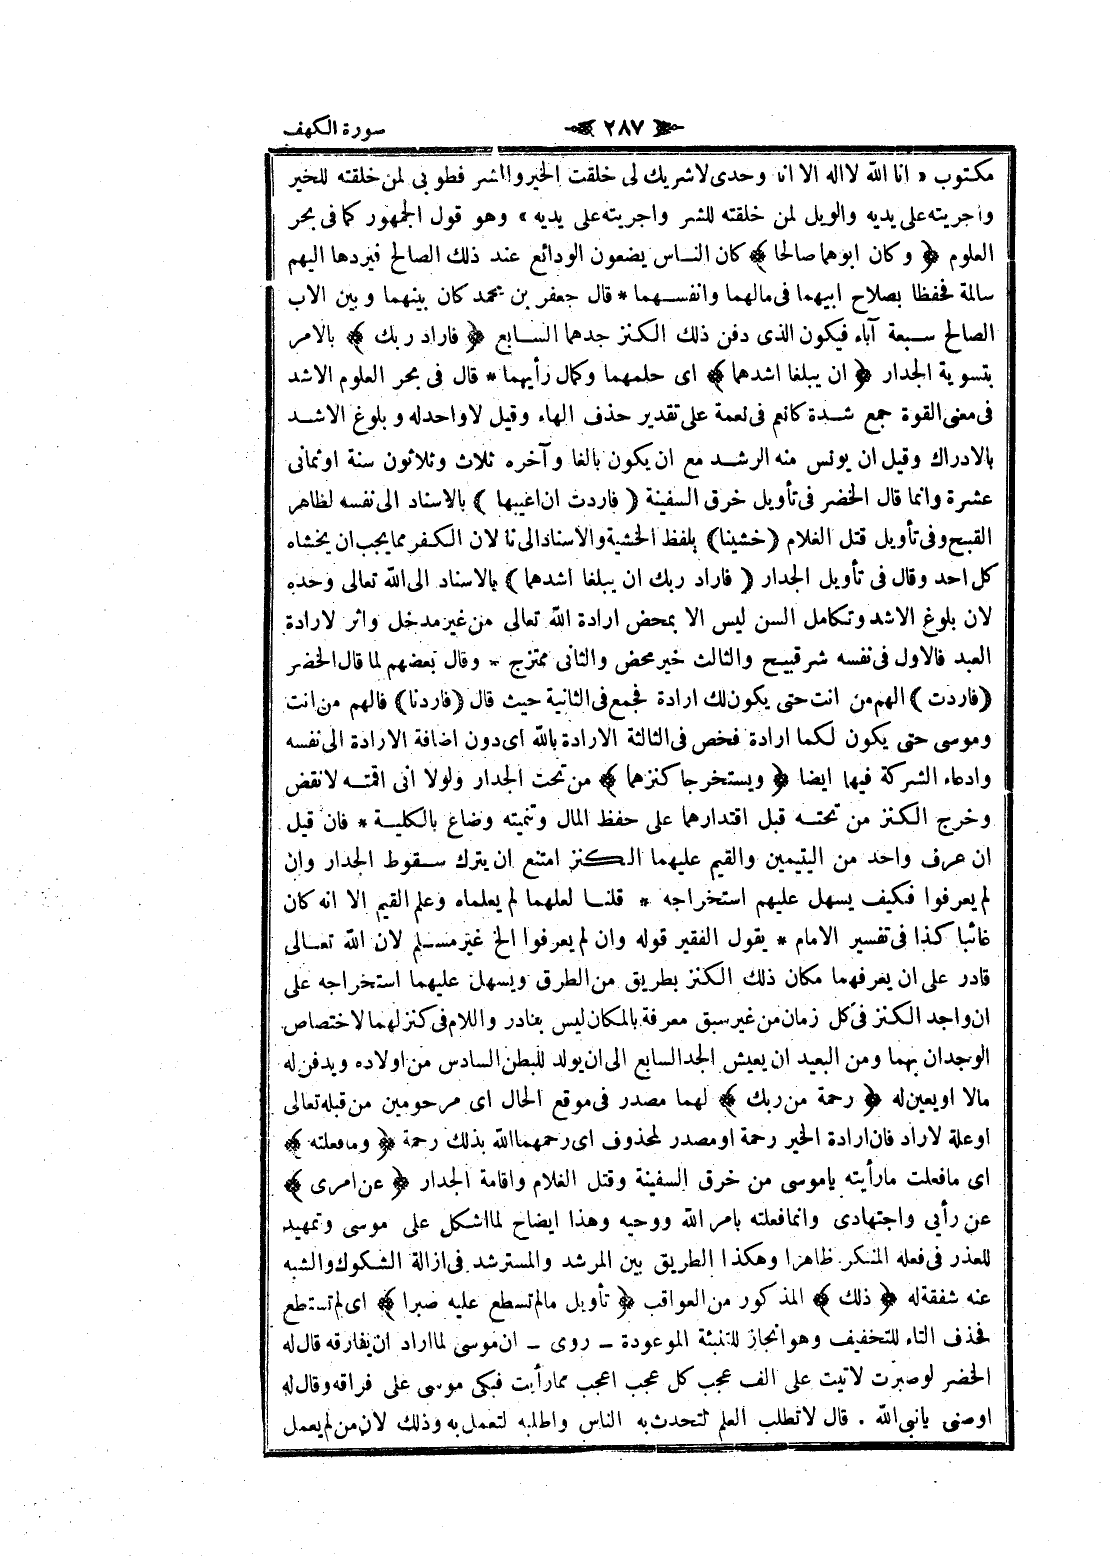 سورة الكهف ٢٨٧
مكتوب « انا الله لا اله الا انا وحدى لا شريك لى خلقت الخير والشر فطوبى لمن خلقته للخير
واجريته على يديه والويل لمن خلقته للشر واجريته على يديه » وهو قول الجمهور كما فى بحر
العلوم ﴿ وكان ابوهما صالحا ﴾ كان الناس يضعون الودائع عند ذلك الصالح فيردها اليهم
سالمة فحفظا بصلاح ابيهما فى مالهما وانفسهما * قال جعفر بن محمد كان بينهما وبين الاب
الصالح سبعة آباء فيكون الذى دفن ذلك الكنز جدهما السابع ﴿ فاراد ربك ﴾ بالامر
بتسوية الجدار ﴿ ان يبلغا اشدهما ﴾ اى حلمهما وكمال رأيهما * قال فى بحر العلوم الاشد
فى معنى القوة جمع شدة كانعم فى نعمة على تقدير حذف الهاء وقيل لا واحد له وبلوغ الاشد
بالادراك وقيل ان يونس منه الرشد مع ان يكون بالغا وآخره ثلاث وثلاثون سنة او ثمانى
عشرة وانما قال الخضر فى تأويل خرق السفينة ( فاردت ان اعيبها ) بالاسناد الى نفسه لظاهر
القبح وفى تأويل قتل الغلام (خشينا) بلفظ الخشية والاسناد الى نا لان الكفر مما يجب ان يخشاه
كل احد وقال فى تأويل الجدار ( فاراد ربك ان يبلغا اشدهما ) بالاسناد الى الله تعالى وحده
لان بلوغ الاشد وتكامل السن ليس الا بمحض ارادة الله تعالى من غير مدخل واثر لارادة
العبد فالاول فى نفسه شر قبيح والثالث خير محض والثانى ممتزج * وقال بعضهم لما قال الخضر
(فاردت) الهم من انت حتى يكون لك ارادة فجمع فى الثانية حيث قال (فاردنا) فالهم من انت
وموسى حتى يكون لكما ارادة فخص فى الثالثة الارادة بالله اى دون اضافة الارادة الى نفسه
وادعاء الشركة فيها ايضا ﴿ ويستخرجا كنزهما ﴾ من تحت الجدار ولولا انى اقمته لانقض
وخرج الكنز من تحته قبل اقتدارهما على حفظ المال وتنميته وضاع بالكلية * فان قيل
ان عرف واحد من اليتيمين والقيم عليهما الكنز امتنع ان يترك سقوط الجدار وان
لم يعرفوا فكيف يسهل عليهم استخراجه * قلنا لعلهما لم يعلماه وعلم القيم الا انه كان
غائبا كذا فى تفسير الامام * يقول الفقير قوله وان لم يعرفوا الخ غير مسلم لان الله تعالى
قادر على ان يعرفهما مكان ذلك الكنز بطريق من الطرق ويسهل عليهما استخراجه على
ان واجد الكنز فى كل زمان من غير سبق معرفة بالمكان ليس بنادر واللام فى كنز لهما لاختصاص
الوجدان بهما ومن البعيد ان يعيش الجد السابع الى ان يولد للبطن السادس من اولاده ويدفن له
مالا او يعين له ﴿ رحمة من ربك ﴾ لهما مصدر فى موقع الحال اى مرحومين من قبله تعالى
او علة لاراد فان ارادة الخير رحمة او مصدر لمحذوف اى رحمهما الله بذلك رحمة ﴿ وما فعلته ﴾
اى ما فعلت ما رأيته ياموسى من خرق السفينة وقتل الغلام واقامة الجدار ﴿ عن امرى ﴾
عن رأيى واجتهادى وانما فعلته بامر الله ووحيه وهذا ايضاح لما اشكل على موسى وتمهيد
للعذر فى فعله المنكر ظاهرا وهكذا الطريق بين المرشد والمسترشد فى ازالة الشكوك والشبه
عنه شفقة له ﴿ ذلك ﴾ المذكور من العواقب ﴿ تأويل مالم تسطع عليه صبرا ﴾ اى لم تستطع
فحذف التاء للتخفيف وهو انجاز للتنبئة الموعودة ـ روى ـ ان موسى لما اراد ان يفارقه قال له
الخضر لو صبرت لاتيت على الف عجب كل عجب اعجب مما رأيت فبكى موسى على فراقه وقال له
اوصنى يانبى الله . قال لا تطلب العلم لتحدث به الناس واطلبه لتعمل به وذلك لان من لم يعمل